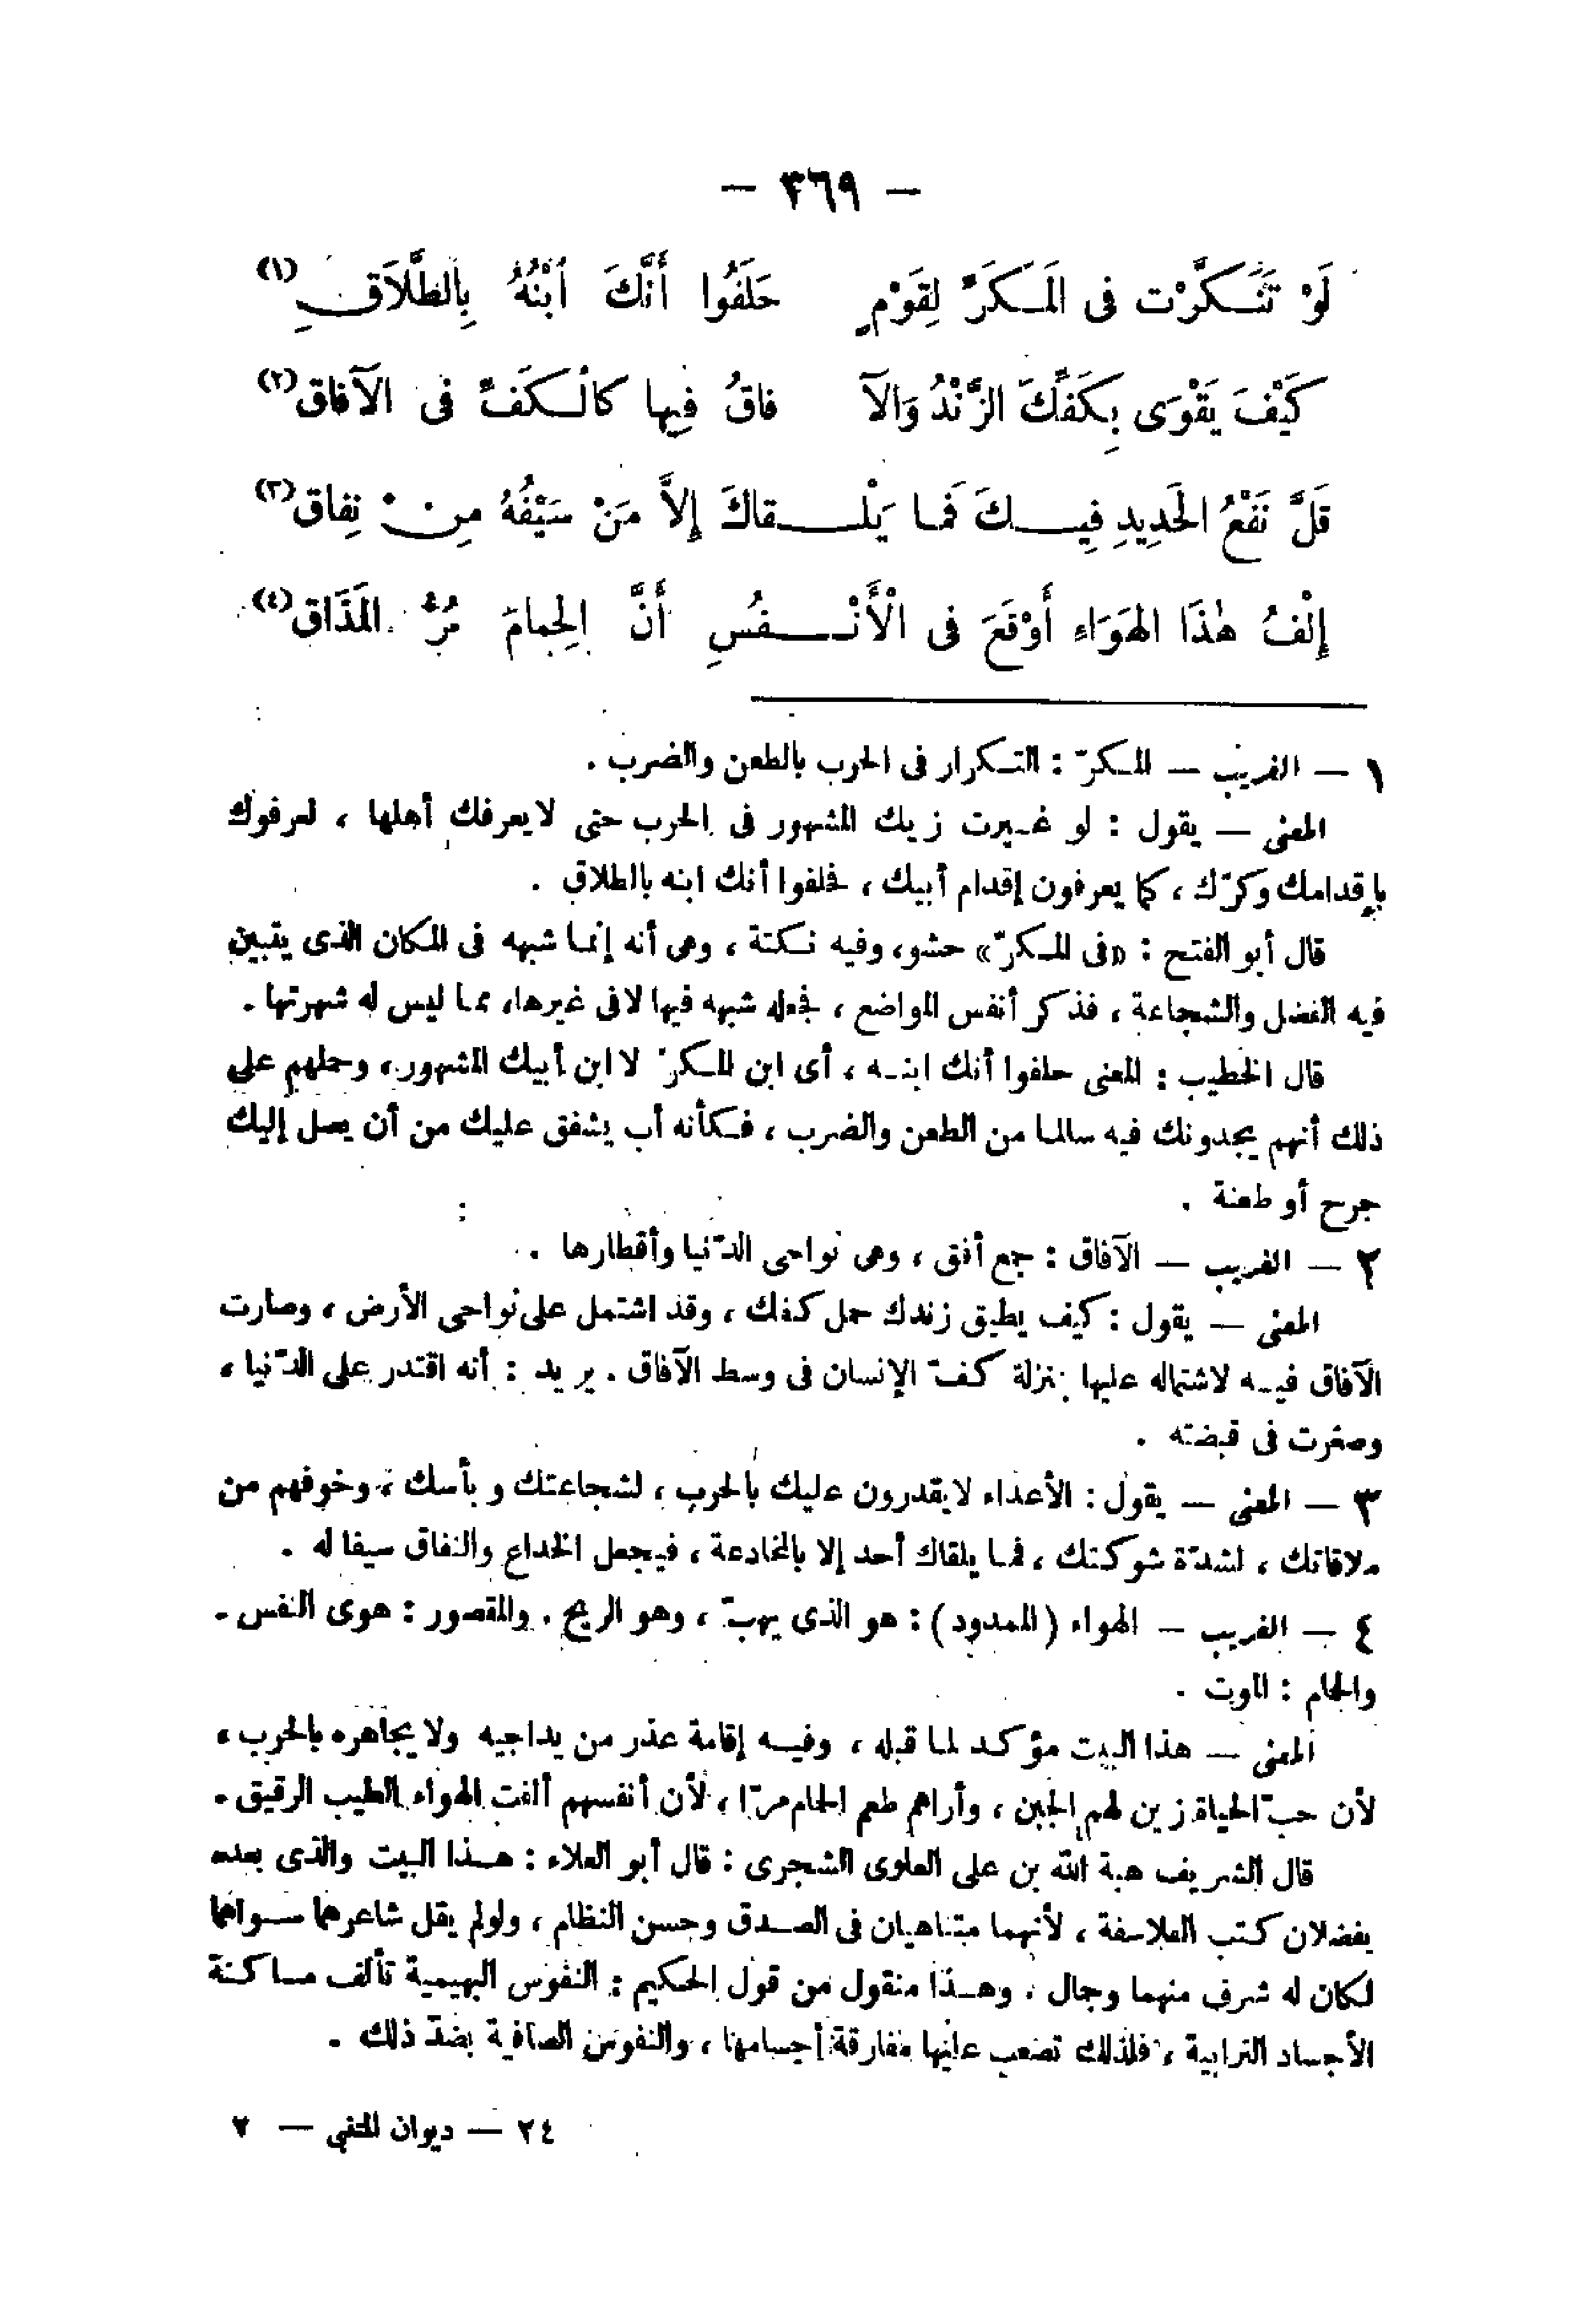 — ٣٦٩ —
لَوْ تَنَكَّرْت فى المَكَرِّ لِقَوْمٍ حَلَفُوا أَنَّكَ ابْنُهُ بِالطَّلَاقِ (١)
كَيْفَ يَقْوَى بِكَفِّكَ الزَّنْدُ وَالآ فاقُ فِيها كالْكَفِّ فى الآفاق (٢)
قَلَّ نَفْعُ الحَدِيدِ فِيكَ فَمَا يَلْقاكَ إلاَّ مَنْ سَيْفُهُ مِنْ نِفاق (٣)
إِلْفُ هٰذَا الهَوَاءِ أَوْقَعَ فى الْأَنْفُسِ أَنَّ الحِمامَ مُرُّ المَذَاق (٤)
١ — الغريب — المكرّ : التكرار فى الحرب بالطعن والضرب .
المعنى — يقول : لو غيرت زيك المشهور فى الحرب حتى لا يعرفك أهلها ، لعرفوك
بإقدامك وكرّك ، كما يعرفون إقدام أبيك ، فحلفوا أنك ابنه بالطلاق .
قال أبو الفتح : «فى المكرّ» حشو، وفيه نكتة ، وهى أنه إنما شبهه فى المكان الذى يتبين
فيه الفضل والشجاعة ، فذكر أنفس المواضع ، فجعله شبهه فيها لا فى غيرها، مما ليس له شهرتها .
قال الخطيب : المعنى حلفوا أنك ابنه ، أى ابن المكرّ لا ابن أبيك المشهور ، وحملهم على
ذلك أنهم يجدونك فيه سالما من الطعن والضرب ، فكأنه أب يشفق عليك من أن يصل إليك
جرح أو طعنة .
٢ — الغريب — الآفاق : جمع أفق ، وهى نواحى الدّنيا وأقطارها .
المعنى — يقول : كيف يطيق زندك حمل كفك ، وقد اشتمل على نواحى الأرض ، وصارت
الآفاق فيه لاشتماله عليها بمنزلة كفّ الإنسان فى وسط الآفاق . يريد : أنه اقتدر على الدّنيا ،
وصغرت فى قبضته .
٣ — المعنى — يقول : الأعداء لا يقدرون عليك بالحرب ، لشجاعتك وبأسك ، وخوفهم من
ملاقاتك ، لشدّة شوكتك ، فما يلقاك أحد إلا بالمخادعة ، فيجعل الخداع والنفاق سيفا له .
٤ — الغريب — الهواء (الممدود) : هو الذى يهبّ ، وهو الريح . والمقصور : هوى النفس .
والحمام : الموت .
المعنى — هذا البيت مؤكد لما قبله ، وفيه إقامة عذر من يداجيه ولا يجاهره بالحرب ،
لأن حبّ الحياة زين لهم الجبن ، وأراهم طعم الحمام مرّا ، لأن أنفسهم ألفت الهواء الطيب الرقيق .
قال الشريف هبة الله بن على العلوى الشجرى : قال أبو العلاء : هذا البيت والذى بعده
يفضلان كتب الفلاسفة ، لأنهما متناهيان فى الصدق وحسن النظام ، ولو لم يقل شاعرهما سواهما
لكان له شرف منهما وجمال ، وهذا منقول من قول الحكيم : النفوس البهيمية تألف مساكنة
الأجساد الترابية ، فلذلك تصعب عليها مفارقة أجسامها ، والنفوس الصافية بضدّ ذلك .
٢٤ — ديوان المتنبي — ٢